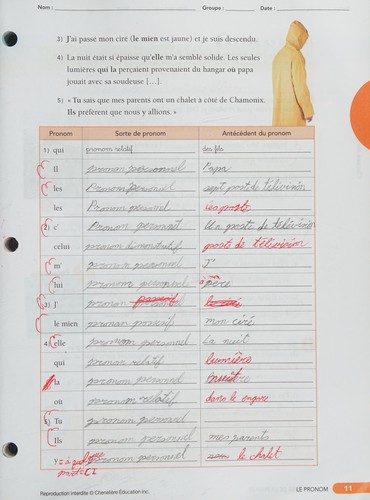 Nom : Groupe : Date :
3) J'ai passé mon ciré (le mien est jaune) et je suis descendu.
4) La nuit était si épaisse qu'elle m'a semblé solide. Les seules
lumières qui la perçaient provenaient du hangar où papa
jouait avec sa soudeuse [...].
5) « Tu sais que mes parents ont un chalet à côté de Chamonix.
Ils préfèrent que nous y allions. »
Pronom Sorte de pronom Antécédent du pronom
1) qui pronom relatif des fils
Il pronom personnel Papa
les Pronom personnel sept post de télévision
les Pronom personnel les posts
2) c' Pronom personnel Un poste de télévision
celui pronom démonstratif post de télévision
m' pronom personnel J'
lui pronom personnel père
3) J' pronom personnel
le mien pronom possessif mon ciré
4) elle pronom personnel La nuit
qui pronom relatif lumière
la pronom personnel nuit
où pronom relatif dans le
5) Tu pronom personnel
Ils pronom personnel mes parents
y pronom personnel le chalet
Reproduction interdite © Chenelière Éducation inc.
LE PRONOM 11